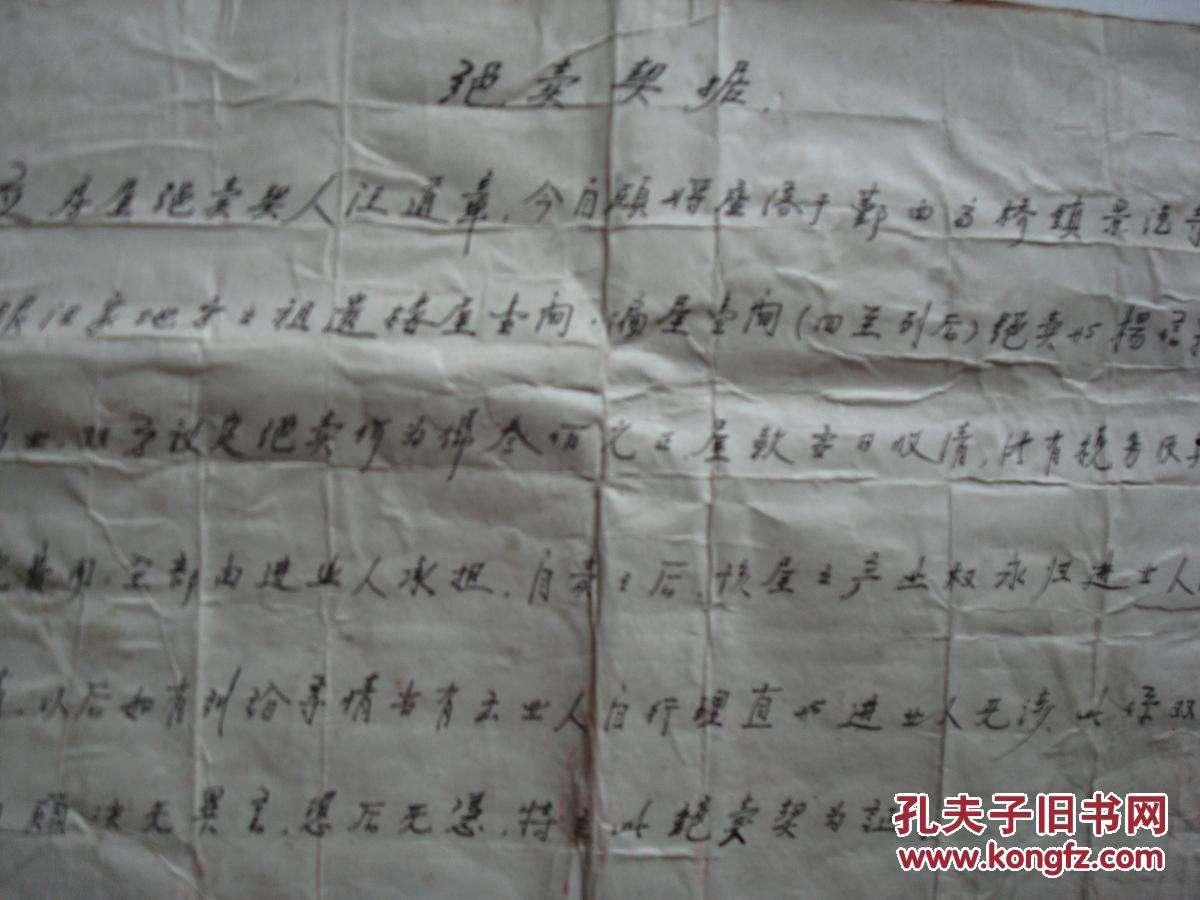 绝卖契据.
房屋绝卖契人汪道章.今自愿将座落于鄞西高桥镇景
地方之祖遗楼屋壹间.屋壹间(四至列后)绝卖与杨
业.双方议定绝卖价为俾叁佰元正屋款当日收清,所有税务及
费用.全部由进业人承担.自卖之后,该屋之产业权永归进业人
以后如有纠纷事情皆有出业人自行理直与进业人无涉.此係双
愿决无异言.恐后无凭.特立此绝卖契为证
孔夫子旧书网
www.kongfz.com